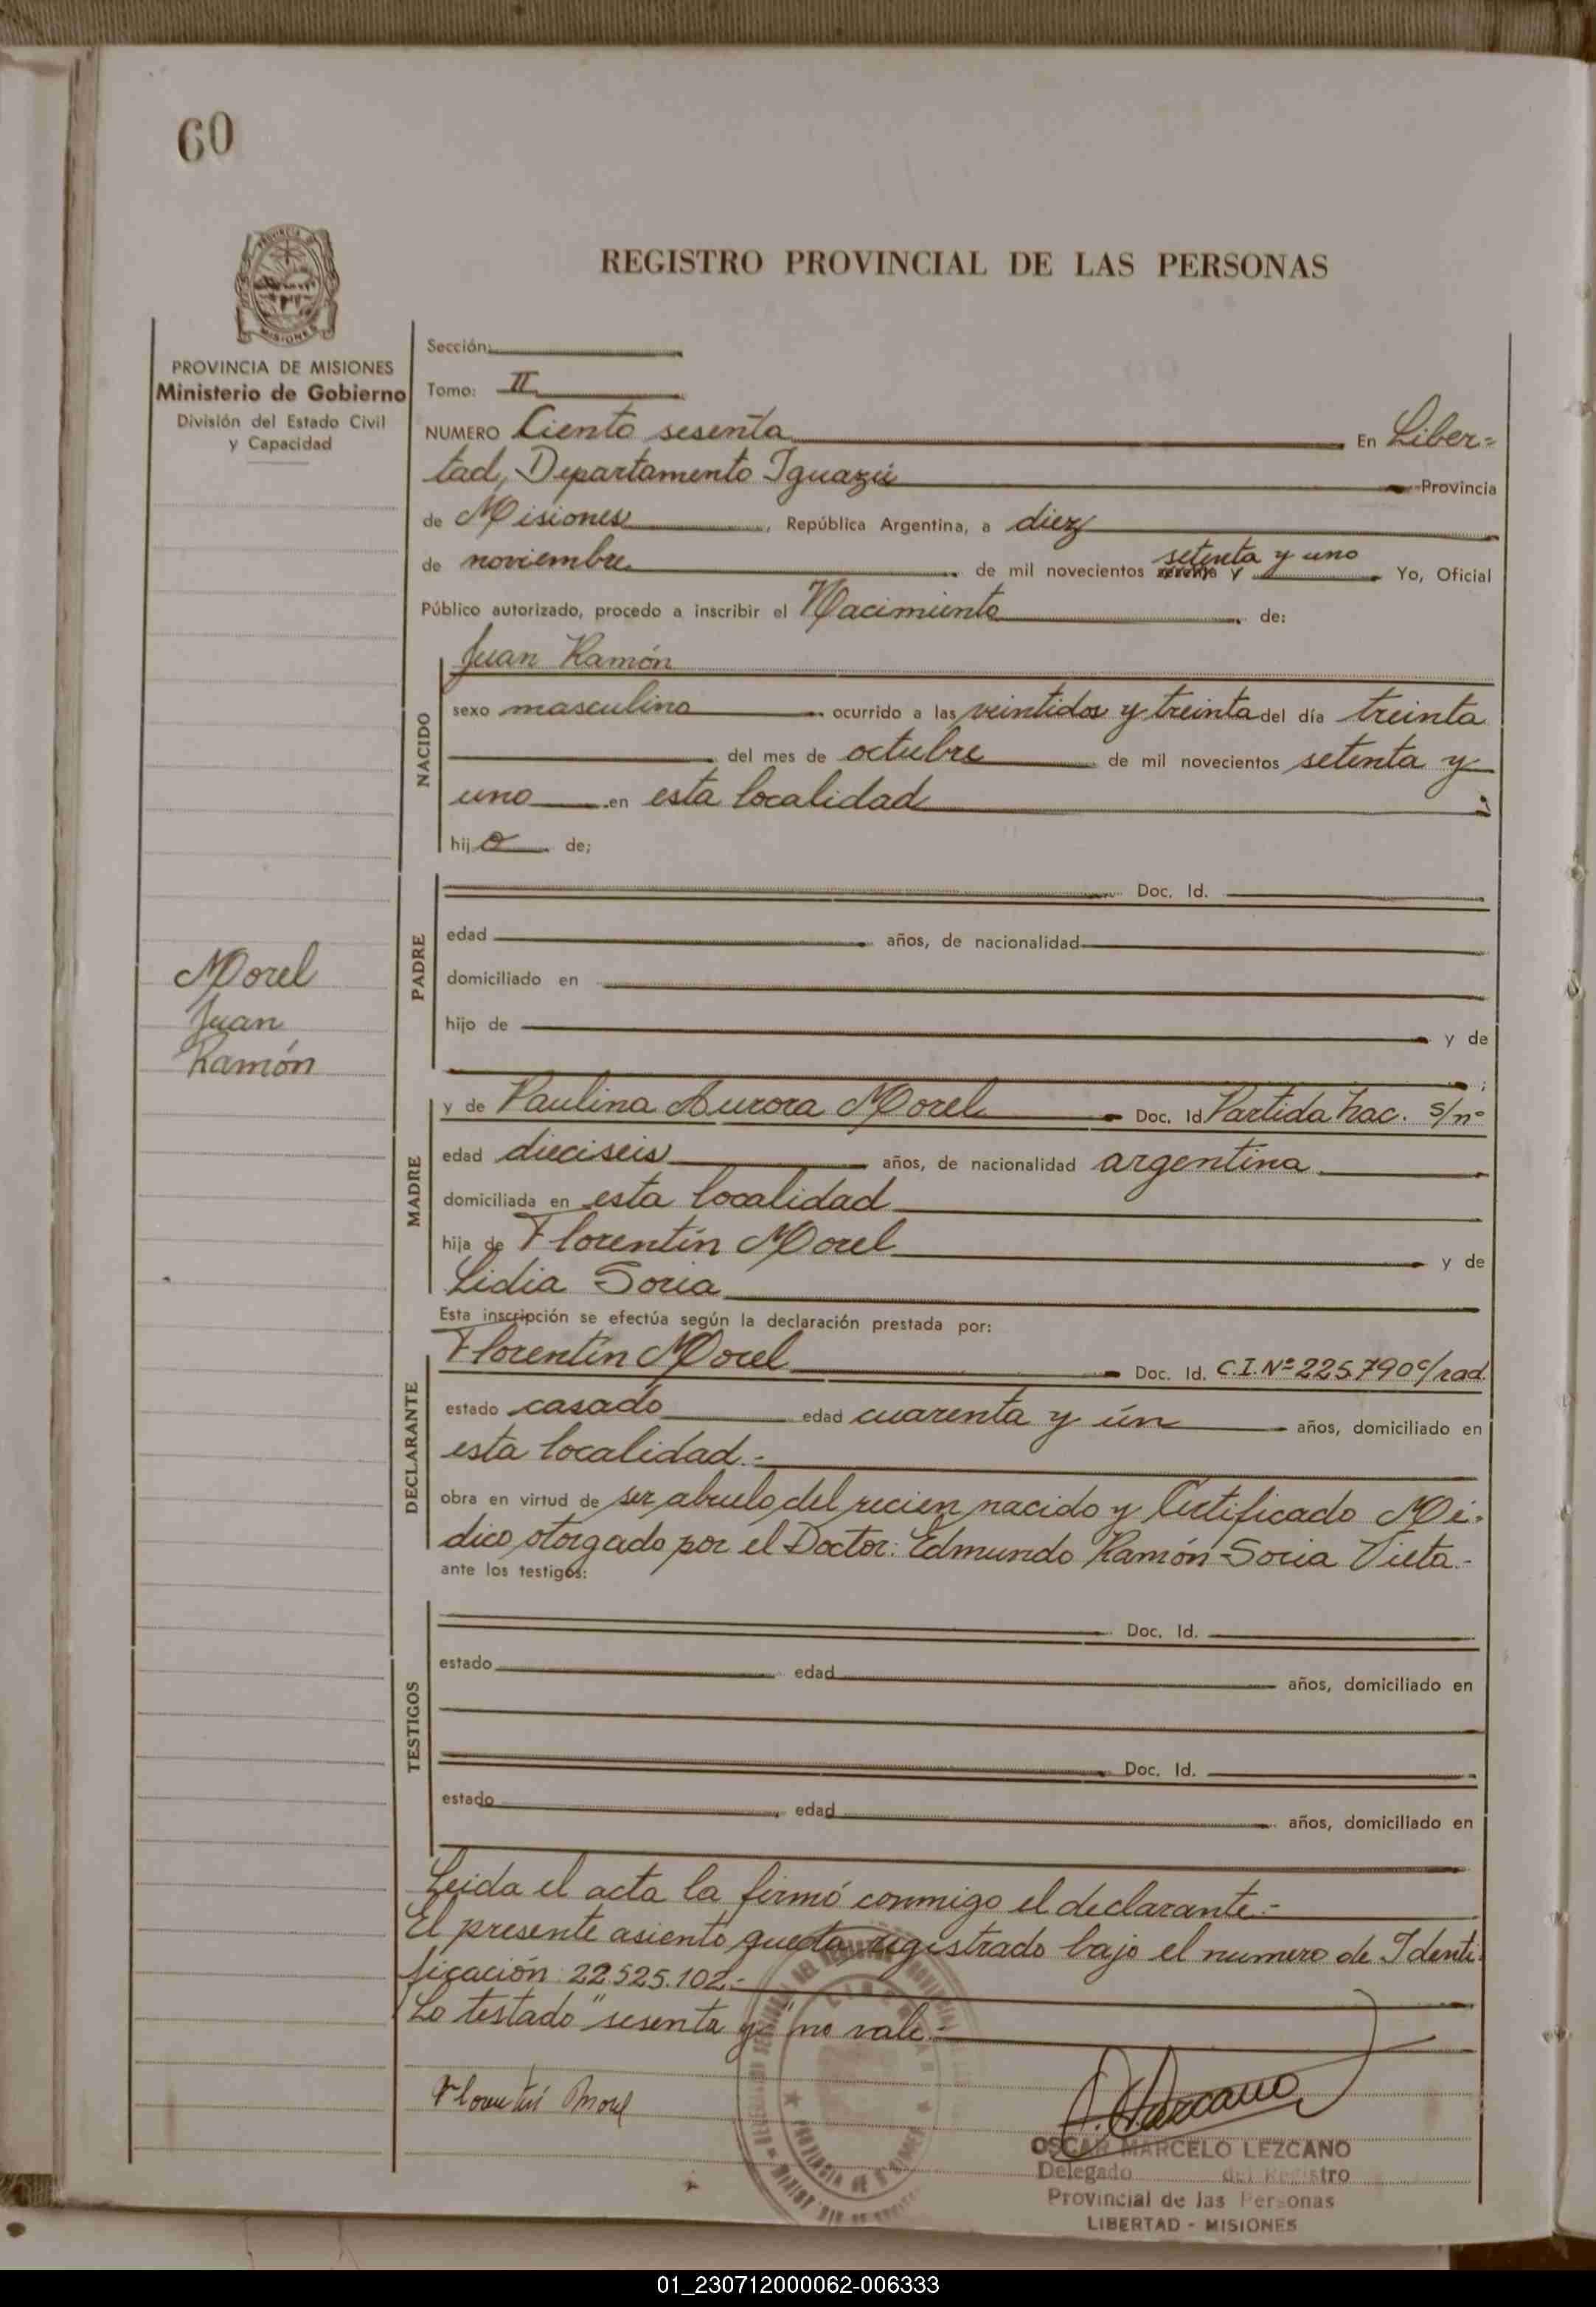 60
REGISTRO PROVINCIAL DE LAS PERSONAS
PROVINCIA DE MISIONES
Ministerio de Gobierno
División del Estado Civil
y Capacidad
Sección:
Tomo: II
NUMERO Ciento sesenta En Liber=
tad, Departamento Iguazú Provincia
de Misiones, República Argentina, a diez
de noviembre de mil novecientos sesenta y setenta y uno Yo, Oficial
Público autorizado, procedo a inscribir el Nacimiento de:
NACIDO
Juan Ramón
sexo masculino ocurrido a las veintidos y treinta del día treinta
del mes de octubre de mil novecientos setenta y
uno en esta localidad ;
hijo de;
PADRE
Doc. Id.
edad años, de nacionalidad
domiciliado en
hijo de y de
;
Morel
Juan
Ramón
MADRE
y de Paulina Aurora Morel Doc. Id Partida nac. s/nº
edad dieciseis años, de nacionalidad argentina
domiciliada en esta localidad
hija de Florentín Morel y de
Lidia Soria
Esta inscripción se efectúa según la declaración prestada por:
DECLARANTE
Florentín Morel Doc. Id. C.I.Nº 225.790 c/rad.
estado casado edad cuarenta y ún años, domiciliado en
esta localidad.-
obra en virtud de ser abuelo del recien nacido y Certificado Mé-
dico otorgado por el Doctor: Edmundo Ramón Soria Vieta.-
ante los testigos:
TESTIGOS
Doc. Id.
estado edad años, domiciliado en
Doc. Id.
estado edad años, domiciliado en
Leida el acta la firmó conmigo el declarante.-
El presente asiento queda registrado bajo el numero de Identi-
ficación 22.525.102.-
Lo testado "sesenta y" no vale.-
Florentín Morel
OSCAR MARCELO LEZCANO
Delegado del Registro
Provincial de las Personas
LIBERTAD - MISIONES
01_230712000062-006333